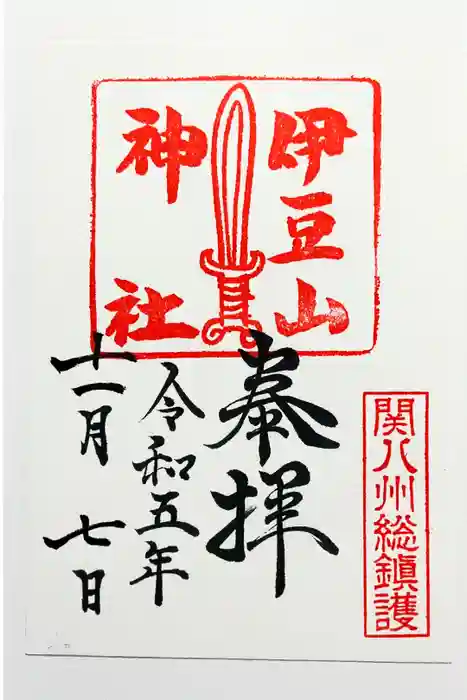 伊豆山
神社
関八州総鎮護
奉拝
令和五年
十一月七日